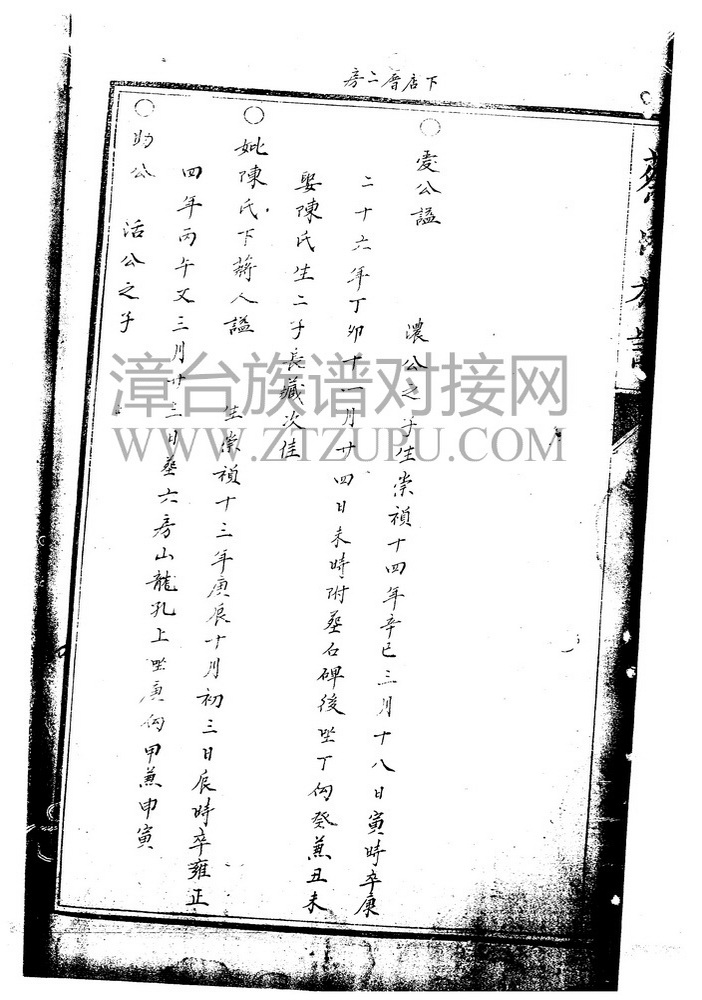 下店厝二房
○愛公諡　濃公之子生崇禎十四年辛巳三月十八日寅時卒康
二十六年丁卯十一月廿四日未時附塟石碑後坐丁向癸蒹丑未
娶陳氏生二子長藏次佳
○妣陳氏下蔣人諡　生崇禎十三年庚辰十月初三日辰時卒雍正
四年丙午又三月廿三日塟六房山龍孔上坐庚向甲蒹申寅
○助公　活公之子
漳台族谱对接网
WWW.ZTZUPU.COM